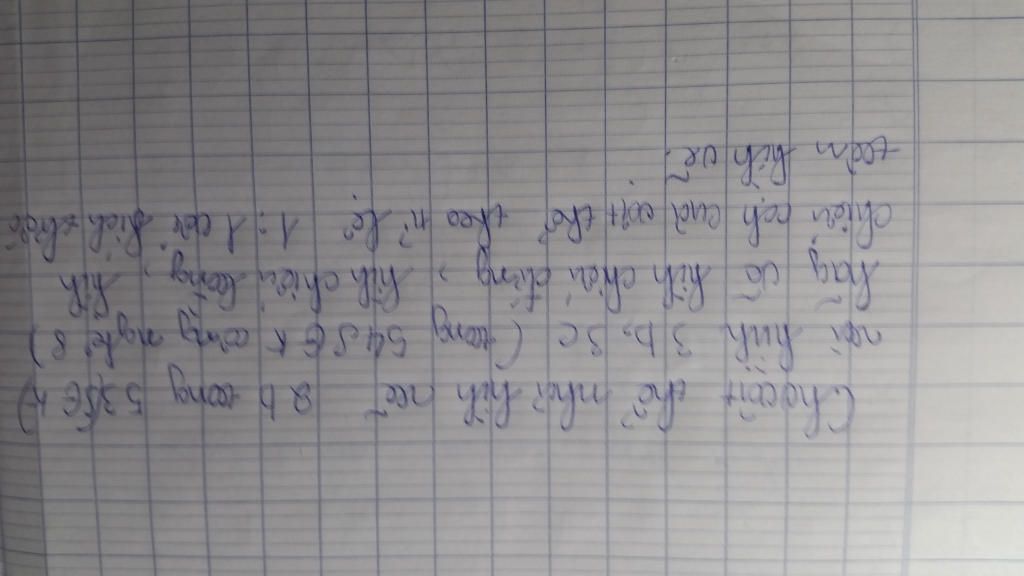 Cho vật thể như hình vẽ 2b trang 53 SGK
nối hình 3b, 3c ( trang 54 SGK công nghệ 8 )
hãy vẽ hình chiếu đứng, hình chiếu bằng, hình
chiếu cạnh của vật thể theo tỉ lệ 1:1 các kích thước
trên hình vẽ.